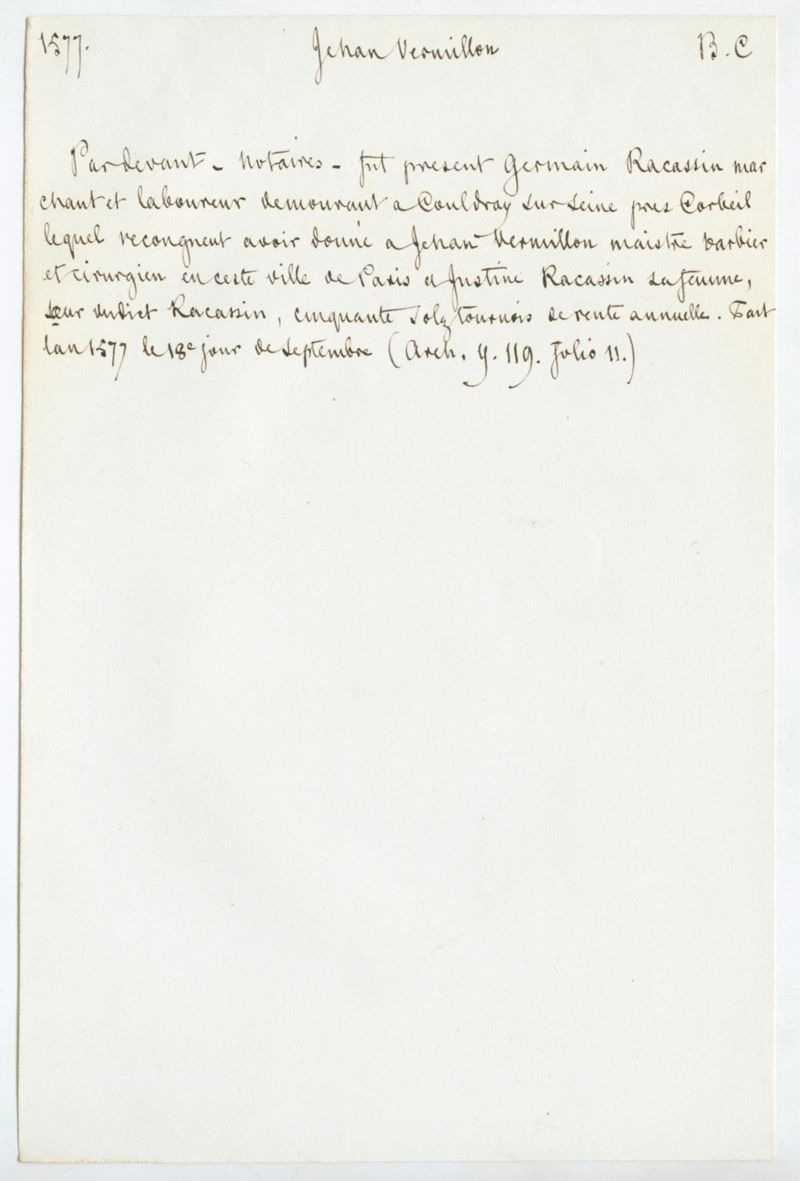 1577. Jehan Vermillon B. C
Pardevant - notaires - fut present Germain Racassin mar
chant et laboureur demourant a Couldray sur seine pres Corbeil
lequel recongneut avoir donné a Jehan Vermillon maistre barbier
et cirurgien en ceste ville de Paris et Justine Racassin sa femme,
sœur dudict Racassin, cinquante solz tournois de rente annuelle. Fait
lan 1577 le 18e jour de septembre (Arch. Y. 119. folio 11.)